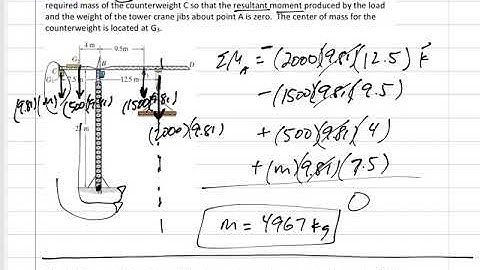 required mass of the counterweight C so that the resultant moment produced by the load
and the weight of the tower crane jibs about point A is zero. The center of mass for
the counterweight is located at G₃.
4 m
9.5m
G₂
B
C
D
G₃
7.5 m
12.5 m
(9.81)(m)
(500)(9.81)
(1500)(9.81)
(2000)(9.81)
ΣM_A = -(2000)(9.81)(12.5) k
-(1500)(9.81)(9.5)
+(500)(9.81)(4)
+(m)(9.81)(7.5)
0
m = 4967 kg